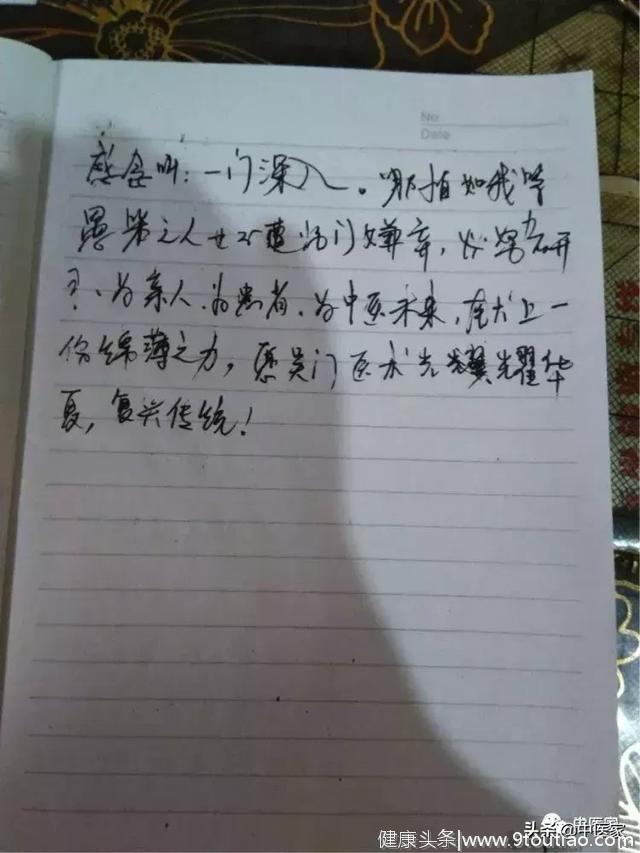 No
Date
感念叫：一门深入。哪怕如我等
愚笨之人也不遭师门嫌弃，必努力研
习、为亲人、为患者、为中医未来，献上一
份绵薄之力，愿吴门医术光耀华
夏，复兴传统！
头条@中医家
健康头条|www.9toutiao.com